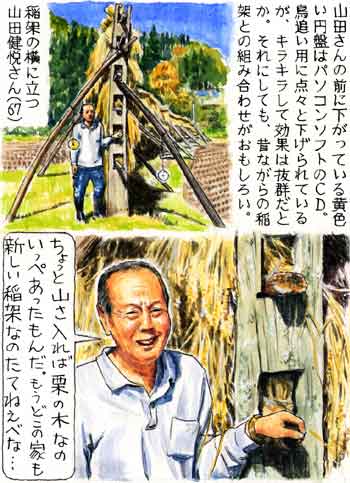 山田さんの前に下がっている黄色
い円盤はパソコンソフトのCD。
鳥追い用に点々と下げられている
が、キラキラして効果は抜群だと
か。それにしても、昔ながらの稲
架との組み合わせがおもしろい。
稲架の横に立つ
山田健悦さん(67)
ちょっと山さ入れば栗の木なの
いっぺあったもんだ。もうどこの家も
新しい稲架なのたてねえべな…